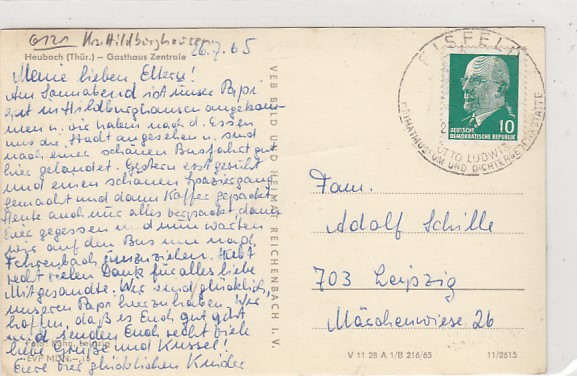 6121 Kr. Hildburghausen
26.7.65
Heubach (Thür.) – Gasthaus Zentrale
Meine lieben Eltern!
Am Sonnabend ist unser Papi
gut in Hildburghausen angekom-
men u. wir haben nach d. Essen
uns die Stadt angesehen u. sind
nach einer schönen Busfahrt gut
hier gelandet. Gestern erst geruht
und einen schönen Spaziergang
gemacht und dann Koffer gepackt.
Heute auch nur alles verpackt, dann
hier gegessen und nun warten
wir auf den Bus um nach
Fehrenbach umzuziehen. Habt
recht vielen Dank für alles liebe
Mitgesandte. Wir sind glücklich,
unseren Papi hier zu haben. Wir
hoffen, daß es Euch gut geht
und senden Euch recht viele
liebe Grüße und Küssel!
Eure vier glücklichen Kinder
Leipzig
EVP MDN –,15
VEB BILD UND HEIMAT REICHENBACH I. V.
EISFELD
OTTO LUDWIG
HEIMATMUSEUM UND DICHTERGEDENKSTÄTTE
DEUTSCHE
DEMOKRATISCHE REPUBLIK
10
Fam.
Adolf Schille
703 Leipzig
Märchenwiese 26
V 11 28 A 1/B 216/65
11/2615